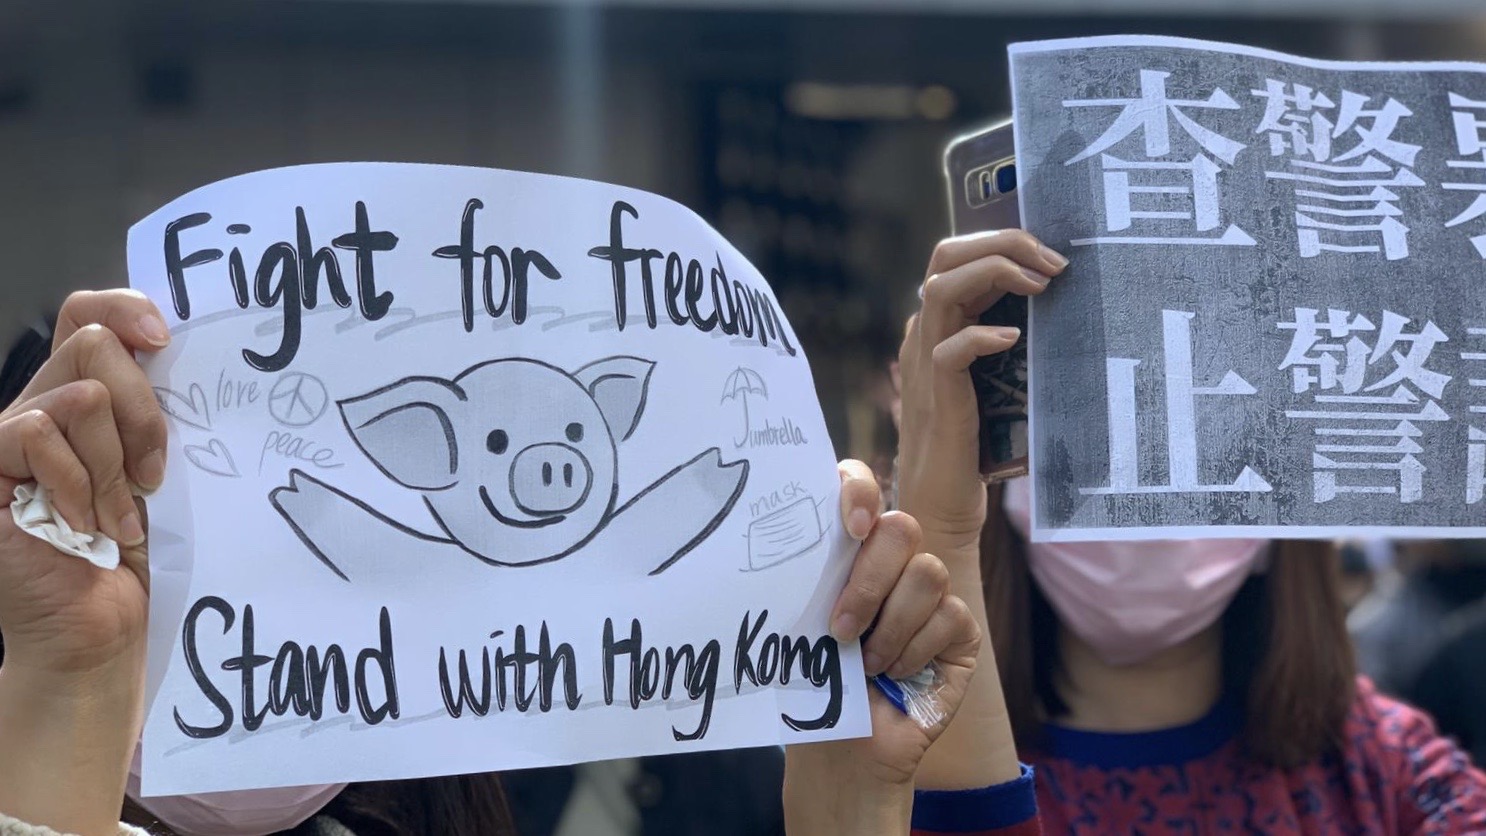 Fight for freedom
love
peace
umbrella
mask
Stand with Hong Kong
查警
止警